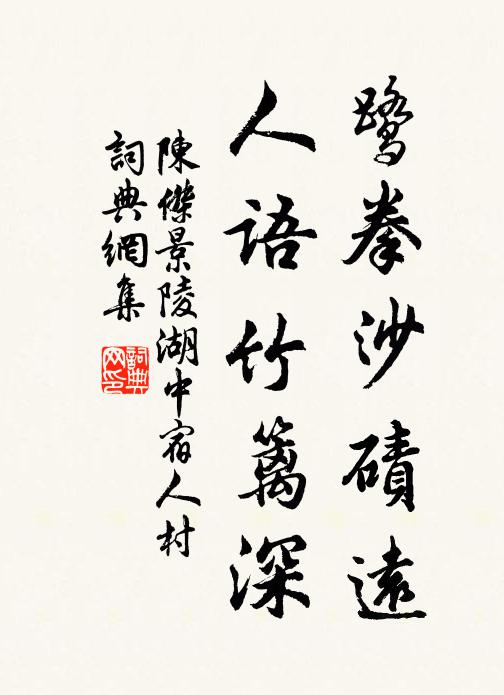 鹭拳沙磧遠
人語竹籬深
陳傑景陵湖中宿人村
詞典網集
詞典
网印